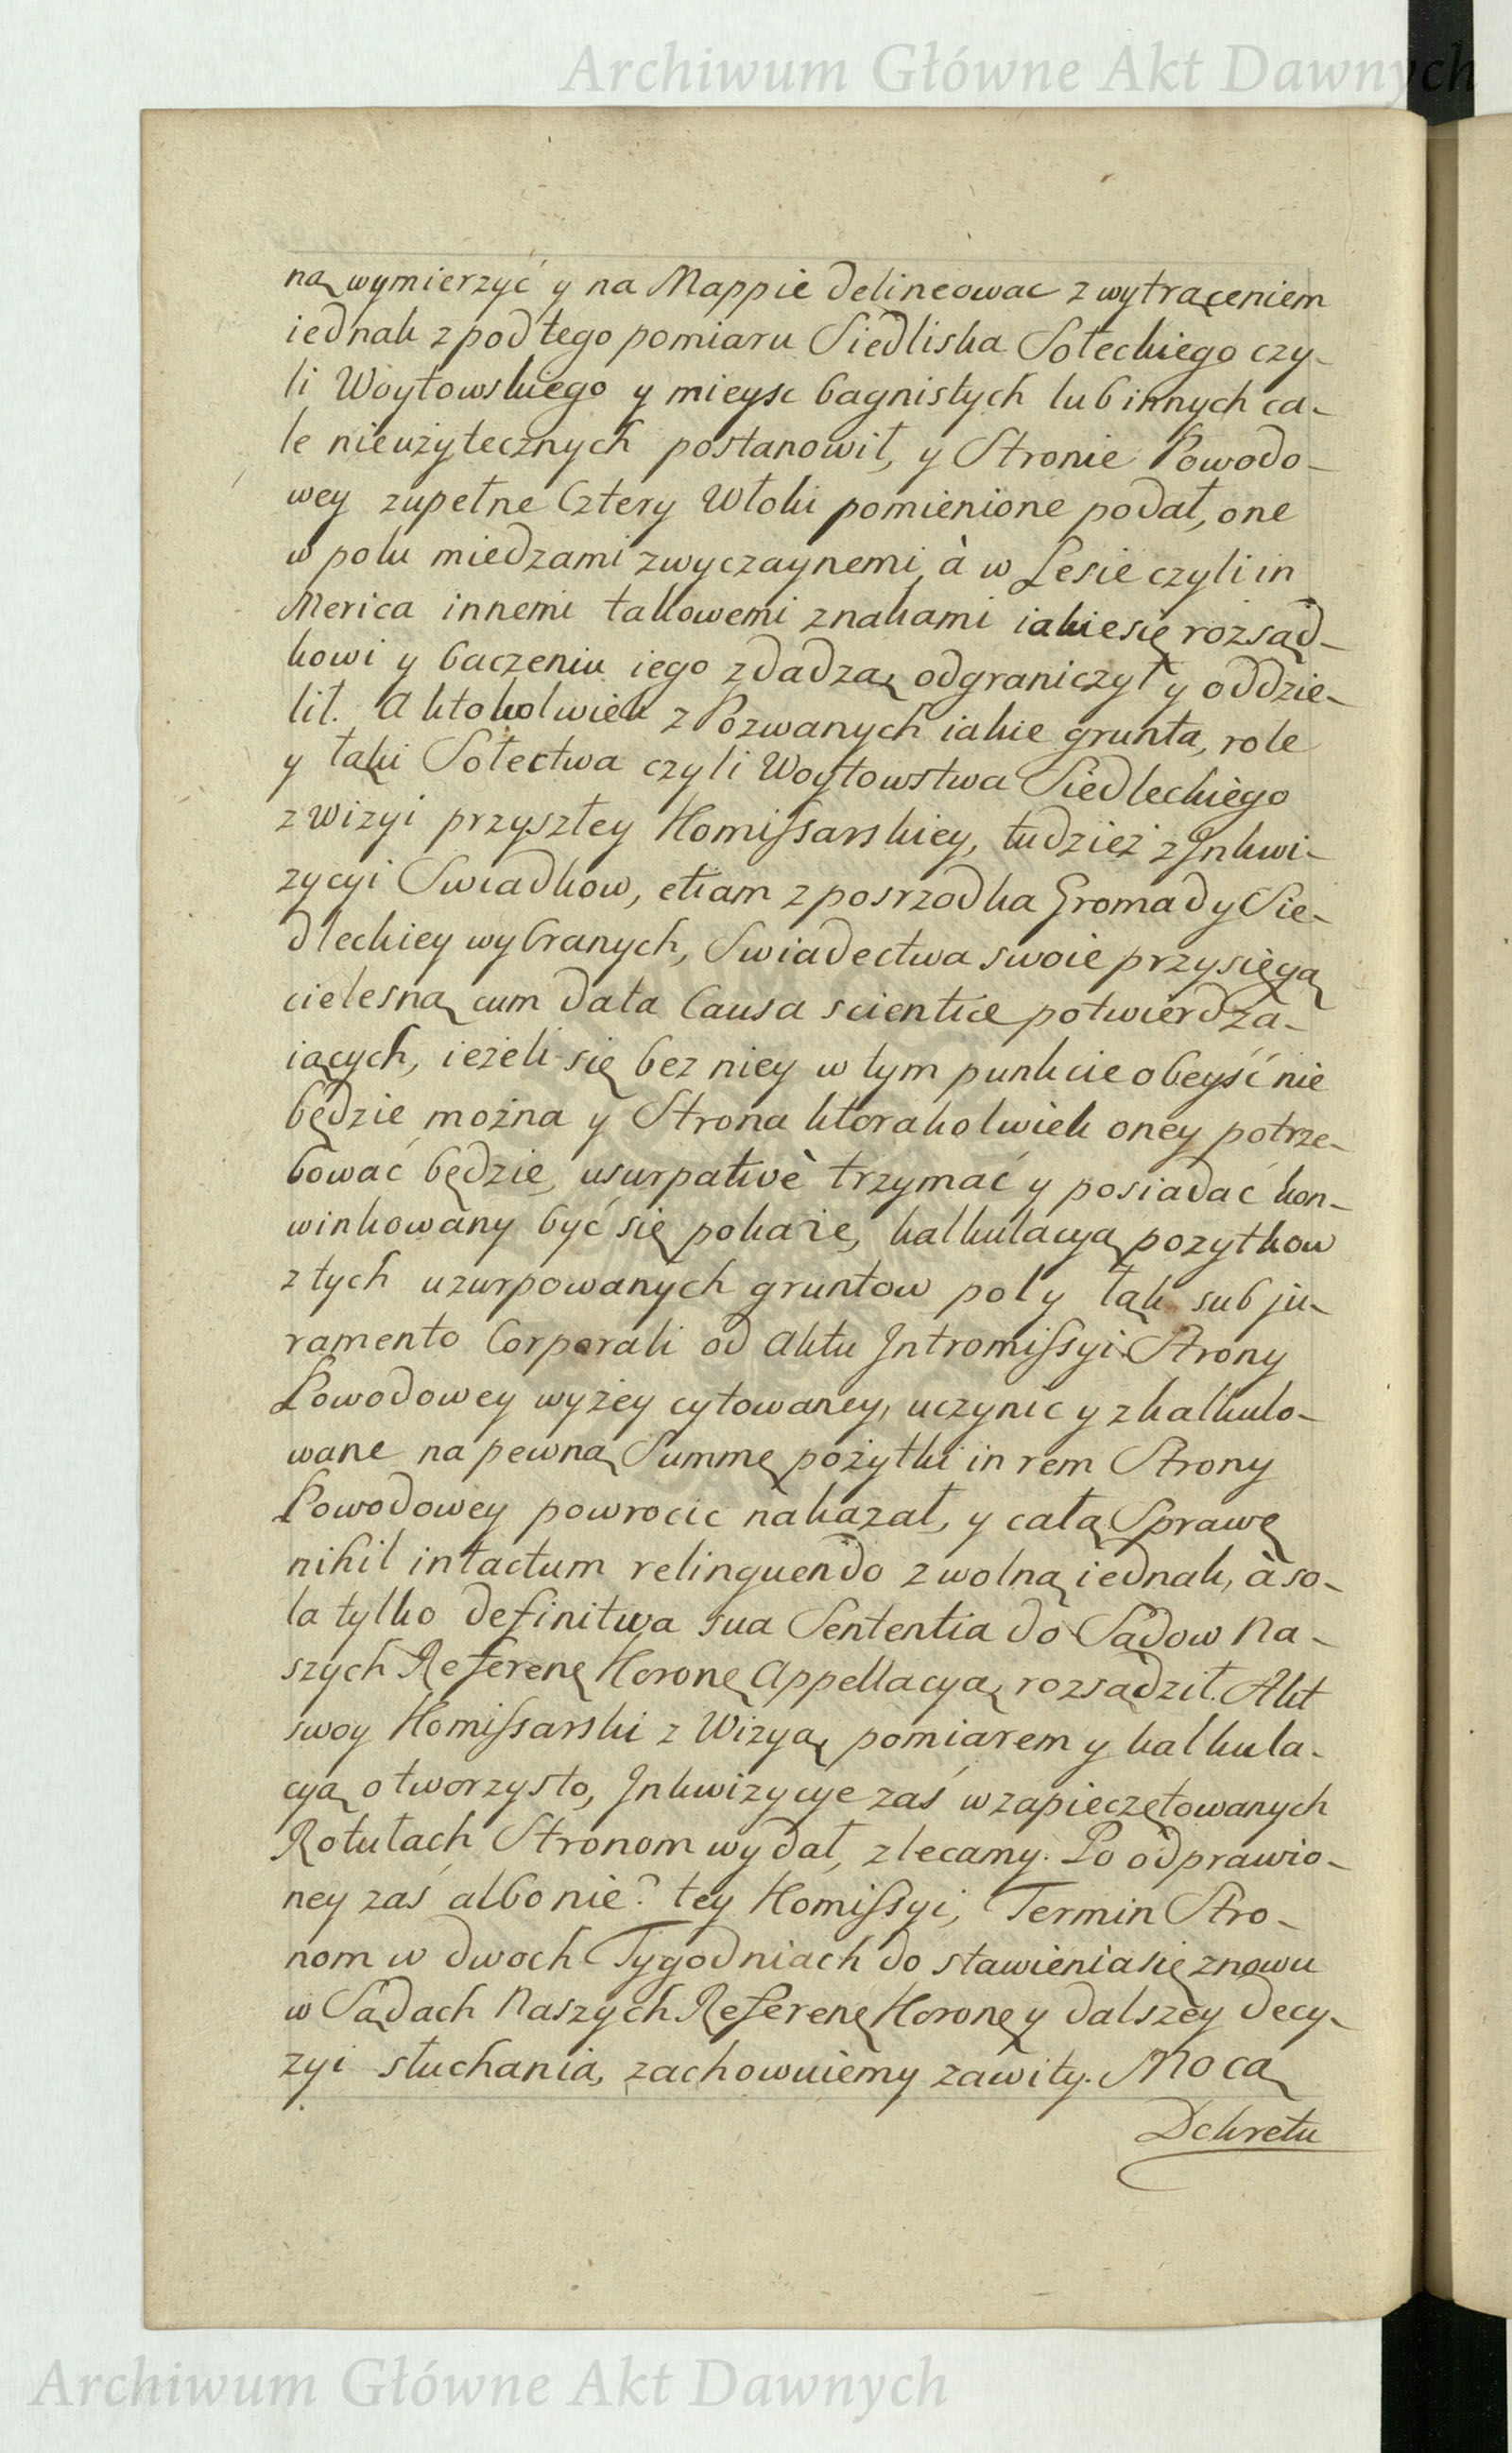 Archiwum Główne Akt Dawnych
ną wymierzyć y na Mappie delineowac z wytrąceniem
iednak z pod tego pomiaru Siedliska Sołeckiego czy-
li Woytowskiego y mieysc bagnistych lub innych ca-
le nieużytecznych postanowił, y Stronie Powodo-
wey zupełne Cztery Włoki pomienione podał, one
w polu miedzami zwyczaynemi, à w Lesie czyli in
Merica innemi takowemi znakami iakie się rozsąd-
kowi y baczeniu iego zdadzą, odgraniczył y oddzie-
lił. A ktokolwiek z Pozwanych iakie grunta, role
y tąki Sołectwa czyli Woytowstwa Siedleckiego
z Wizyi przyszłey Kommissarskiey, tudzież z Inkwi-
zycyi Swiadkow, etiam z posrzodka Gromady Sie-
dleckiey wybranych, Swiadectwa swoie przysięgą
cielesną cum data Causa scientiæ potwierdza-
iących, ieżeli się bez niey w tym punkcie obeyść nie
będzie można y Strona ktorakolwiek oney potrze-
bować będzie, usurpativè trzymać y posiadać kon-
winkowany być się pokaże, kalkulacyą pozytkow
z tych uzurpowanych gruntow poly tąk sub ju-
ramento Corporali od Aktu Intromissyi Strony
Powodowey wyżey cytowaney, uczynic y zkalkulo-
wane na pewną Summę pożytki in rem Strony
Powodowey powrocic nakazał, y całą Sprawę
nihil intactum relinquendo z wolną iednak, à so-
la tylko definitiva sua Sententia do Sądow Na-
szych Referenę Koronę Appellacyą, rozsądził. Akt
swoy Komissarski z Wizyą, pomiarem y kalkula-
cyą otworzysto, Inkwizycye zaś w zapieczętowanych
Rotułach Stronom wydał, zlecamy. Po odprawio-
ney zaś albo nie? tey Komissyi, Termin Stro-
nom w dwoch Tygodniach do stawienia się znowu
w Sądach Naszych Referenę Koronę y dalszey decy-
zyi słuchania, zachowuiemy zawity. Mocą
Dekretu
Archiwum Główne Akt Dawnych